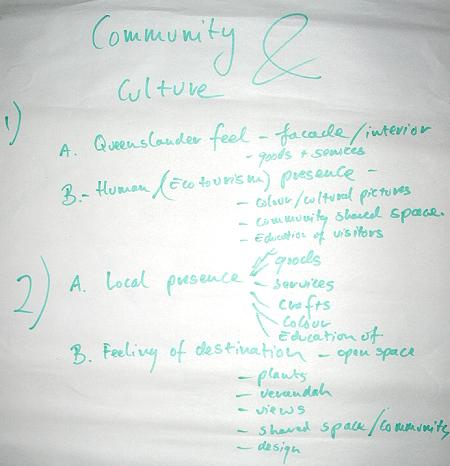 Community &
Culture
1)
A. Queenslander feel - facade/interior
- goods + services
B. - Human (Ecotourism) presence -
- colour/cultural pictures
- community shared space.
- Education of visitors
2)
A. Local presence - goods
- services
crafts
Colour
Education of
B. Feeling of destination - open space
- plants
- verandah
- views
- shared space/community
- design